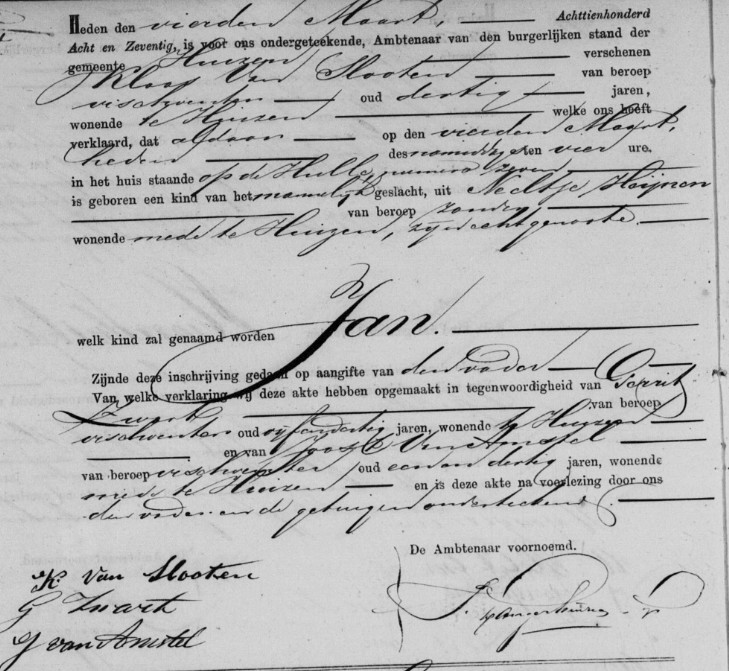 Heden den vierden Maart, Achttienhonderd
Acht en Zeventig, is voor ons ondergeteekende, Ambtenaar van den burgerlijken stand der
gemeente Huizen verschenen
Klaas Van Slooten van beroep
vischventer oud dertig jaren,
wonende te Huizen welke ons heeft
verklaard, dat aldaar op den vierden Maart,
heden des namiddags ten vier ure.
in het huis staande op de Hulle, numero zeven
is geboren een kind van het mannelijk geslacht, uit Neeltje Heijnen
van beroep zonder
wonende mede te Huizen, zijne echtgenoote.
welk kind zal genaamd worden Jan.
Zijnde deze inschrijving gedaan op aangifte van den vader
Van welke verklaring wij deze akte hebben opgemaakt in tegenwoordigheid van Gerrit
Zwart van beroep
vischventer oud vijfendertig jaren, wonende te Huizen
en van Joost Van Amstel
van beroep vischventer oud eenendertig jaren, wonende
mede te Huizen en is deze akte na voorlezing door ons
den vader en de getuigen onderteekend.
De Ambtenaar voornoemd.
K van Slooten
G Zwart
J van Amstel